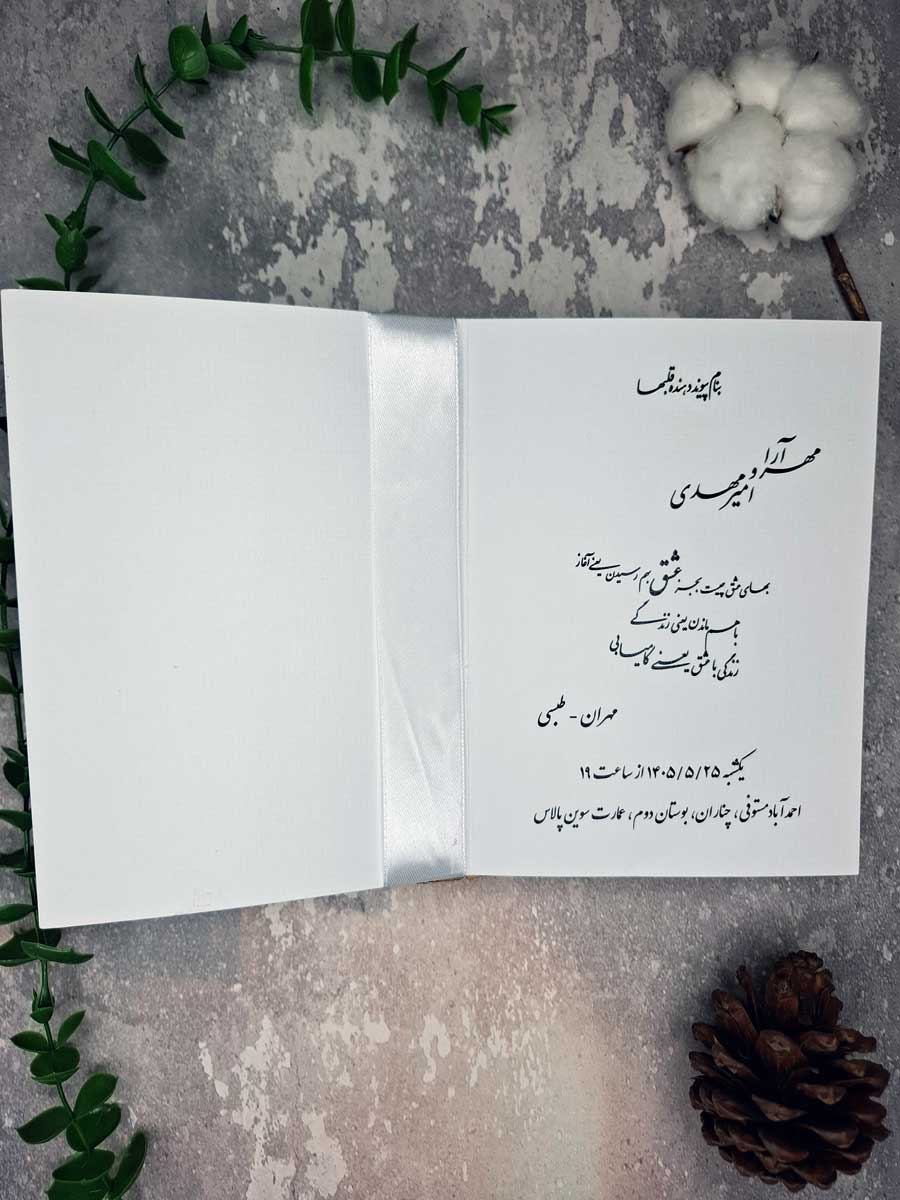 بنام پیوند دهنده قلبها
مهرآرا و
امیرمهدی
بهای عشق چیست بجز عشق بهم رسیدن یعنی آغاز
باهم ماندن یعنی زندگی
زندگی با عشق یعنی کامیابی
مهران - طبسی
یکشنبه ۱۴۰۵/۵/۲۵ از ساعت ۱۹
احمدآباد مستوفی، چناران، بوستان دوم، عمارت سوین پالاس